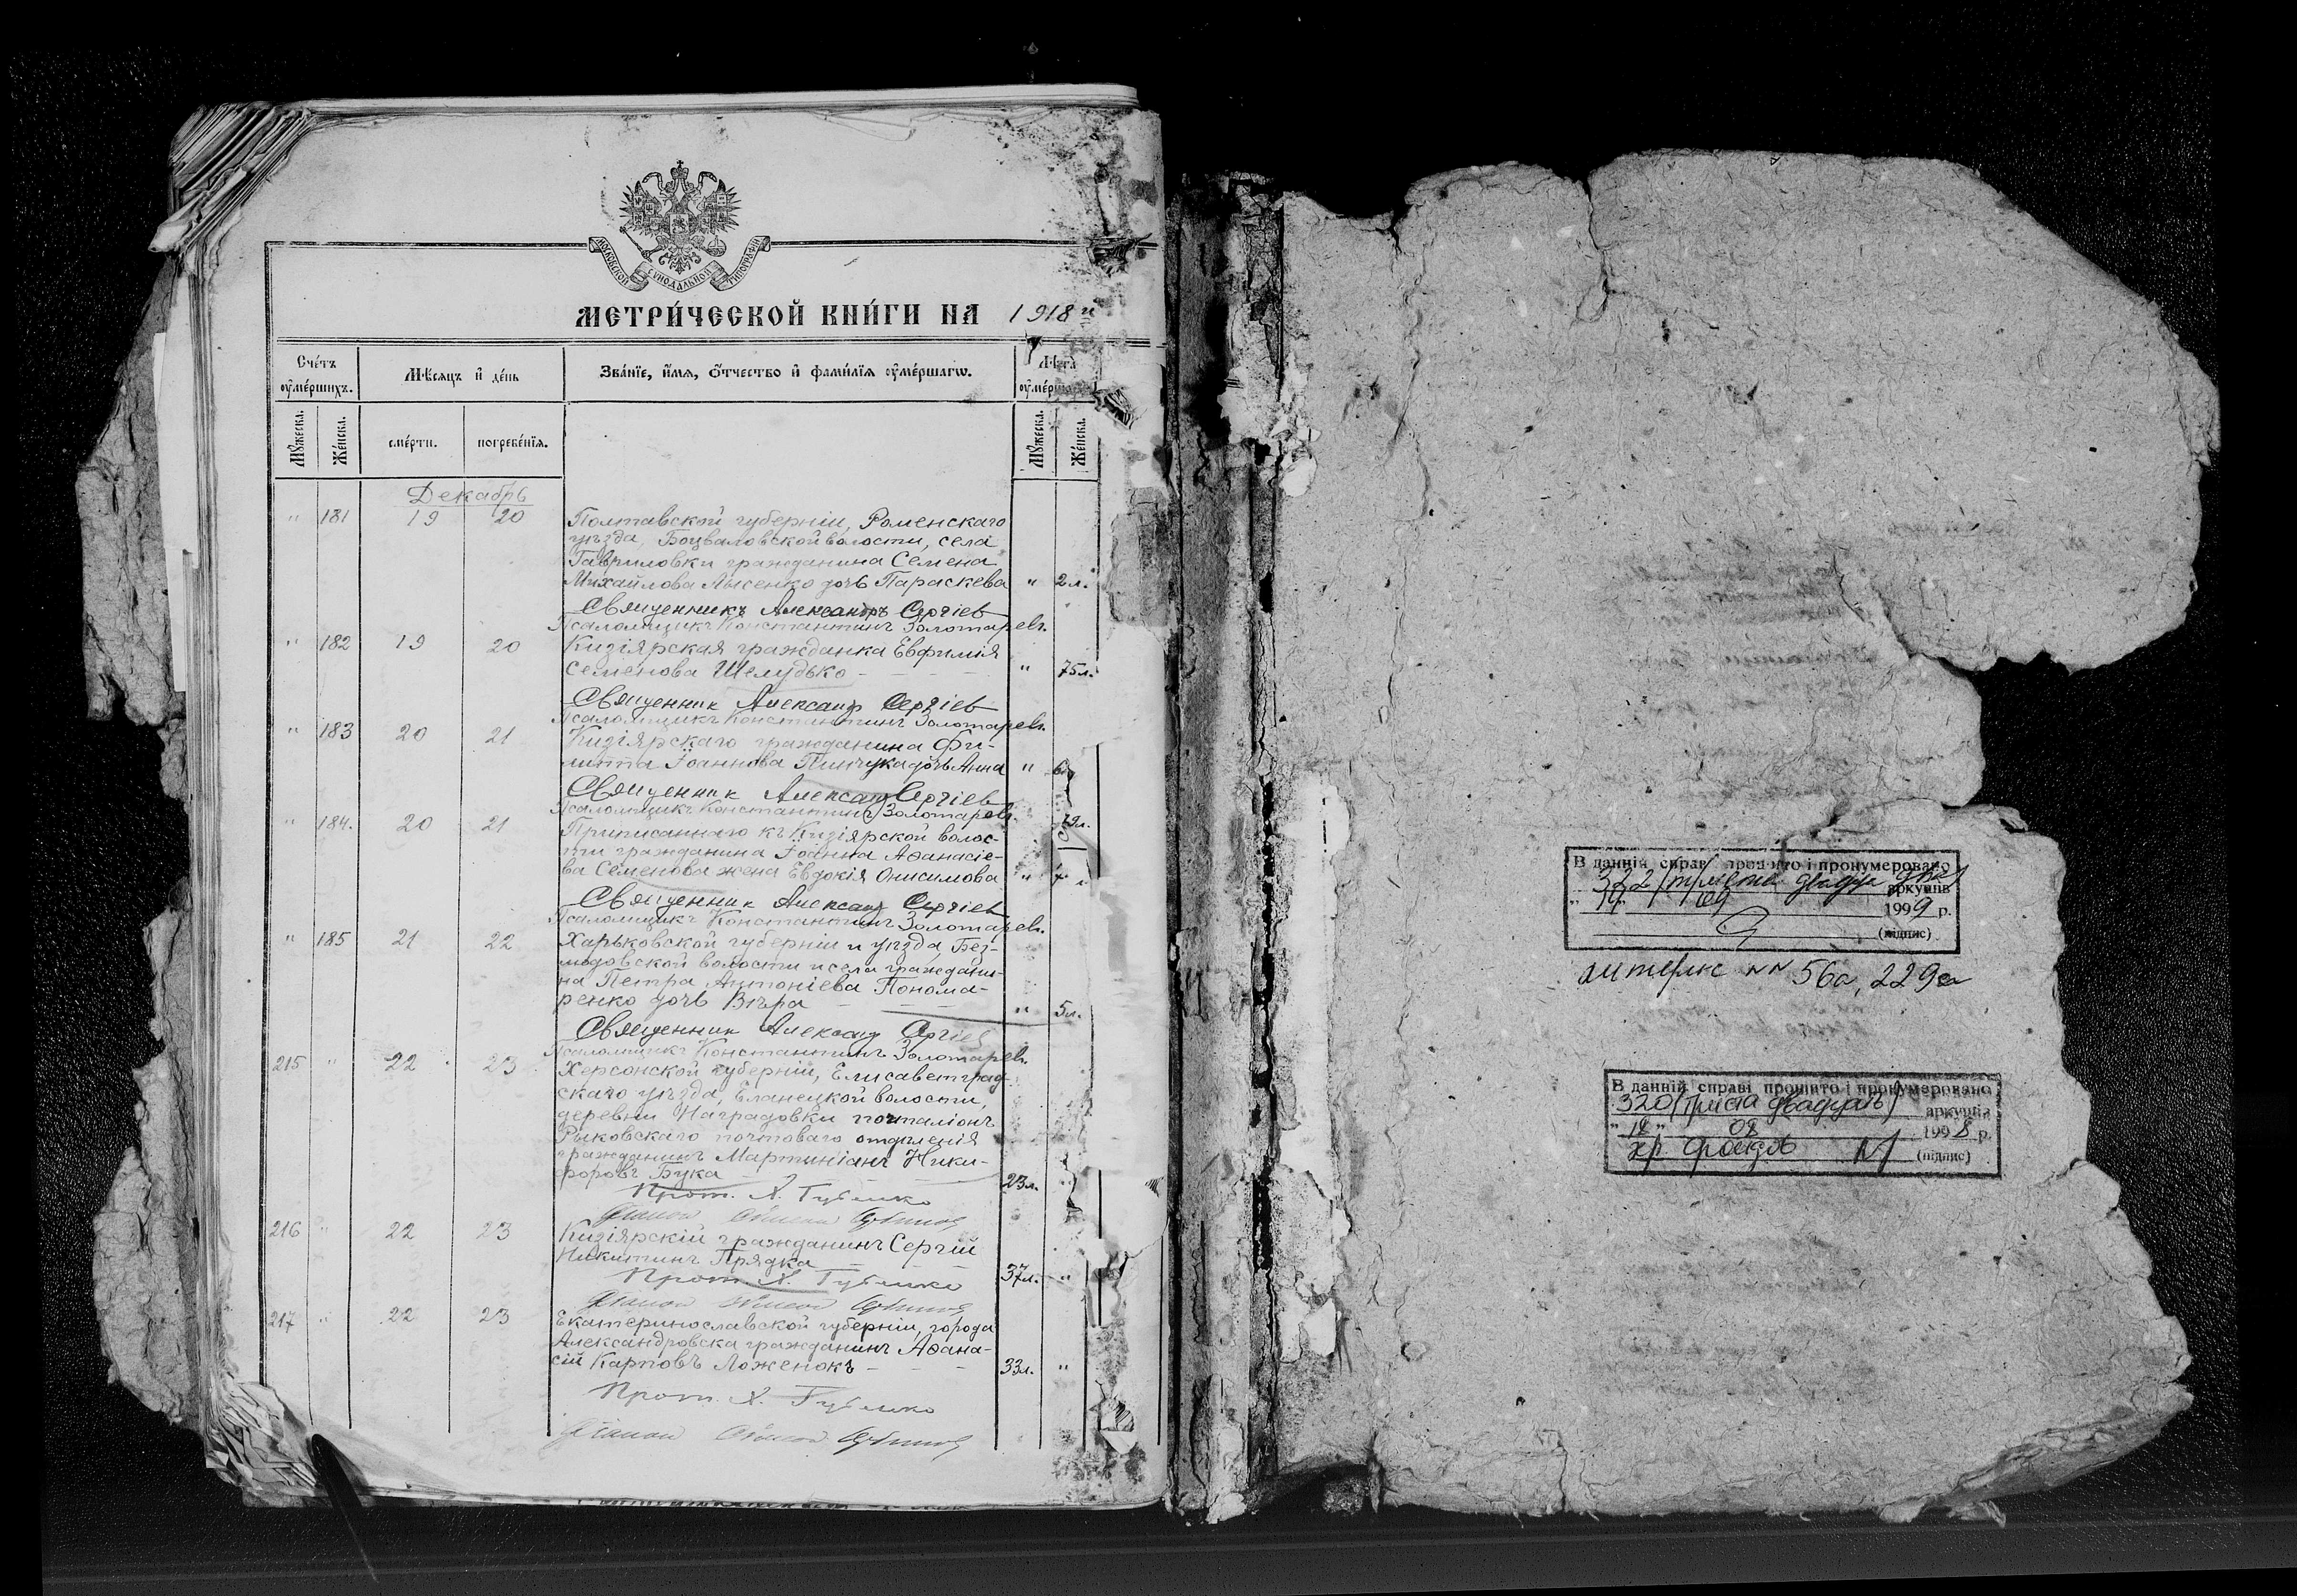 МОСКОВСКОЙ СѴНОДАЛЬНОЙ ТИПОГРАФІИ
МЕТРИ́ЧЕСКОЙ КНИ́ГИ НА 1918 й
Сче́тъ оу҆ме́ршихъ.
Мѣ́сяцъ и҆ де́нь
Зва́нїе, и҆́мѧ, ѻ҆́тчество и҆ фами́лїѧ оу҆ме́ршагѡ.
Лѣта̀
Мꙋ́жеска.
Же́нска.
сме́рти.
погребе́нїѧ.
Мꙋ́жеска.
Же́нска.
Декабрь
" 181 19 20 Полтавской губерніи, Роменскаго
уѣзда, волости, села
Гавриловки гражданина Семена
Михайлова Лысенко дочь Параскева " 2 л.
Священникъ Александръ Сергіев
Псаломщикъ Константинъ Золотаревъ.
" 182 19 20 Кизіярская гражданка Евфимія
Семенова Шелудько " 75 л.
Священник Александр Сергіев
Псаломщикъ Константинъ Золотаревъ.
" 183 20 21 Кизіярскаго гражданина Фи-
липпа Іоаннова Пинчука дочь Анна "
Священник Александр Сергіев
Псаломщикъ Константинъ Золотаревъ.
" 184. 20 21 Приписаннаго къ Кизіярской волос-
ти гражданина Іоанна Аѳанасіе-
ва Семенова жена Евдокія Онисимова "
Священник Александр Сергіев
Псаломщикъ Константинъ Золотаревъ.
" 185 21 22 Харьковской губерніи и уѣзда, Без-
людовской волости и села граждани-
на Петра Антоніева Понома-
ренко дочь Вѣра " 5 л.
Священник Александр Сергіев
Псаломщикъ Константинъ Золотаревъ.
215 " 22 23 Херсонской губерніи, Елисаветград-
скаго уѣзда, Еланецкой волости,
деревни Наградовки почталіонъ
Рыковскаго почтоваго отдѣленія
гражданинъ Мартиніанъ Ники-
форовъ Бука 23 л. "
Прот. Х.
216 " 22 23 Кизіярскій гражданинъ Сергій
Никитинъ Прядка 37 л. "
Прот. Х.
217 " 22 23 Екатеринославской губерніи, города
Александровска гражданинъ Аѳана-
сій Карповъ Ложенокъ 33 л. "
Прот. Х.
В данній справі прошито і пронумеровано
322 аркушів
09 1999 р.
(підпис)
литерне NN 56а, 229а
В данній справі прошито і пронумеровано
320 (триста двадцать) аркушів
" 18 " 08 1998 р.
(підпис)